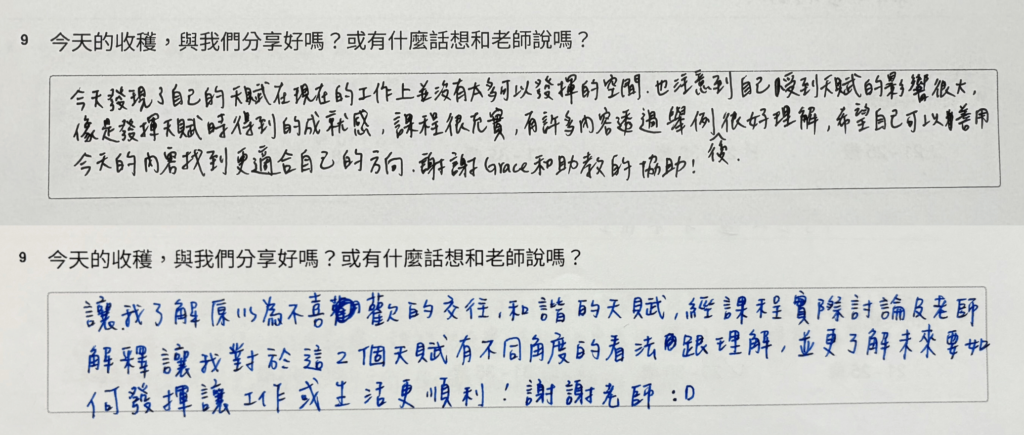 9 今天的收穫，與我們分享好嗎？或有什麼話想和老師說嗎？
今天發現了自己的天賦在現在的工作上並沒有太多可以發揮的空間.也注意到自己受到天賦的影響很大,
像是發揮天賦時得到的成就感,課程很充實,有許多內容透過舉例後很好理解,希望自己可以善用
今天的內容找到更適合自己的方向.謝謝Grace和助教的協助!
9 今天的收穫，與我們分享好嗎？或有什麼話想和老師說嗎？
讓我了解原以為不喜歡的交往,和諧的天賦,經課程實際討論及老師
解釋讓我對於這2個天賦有不同角度的看法跟理解,並更了解未來要如
何發揮讓工作或生活更順利!謝謝老師:D